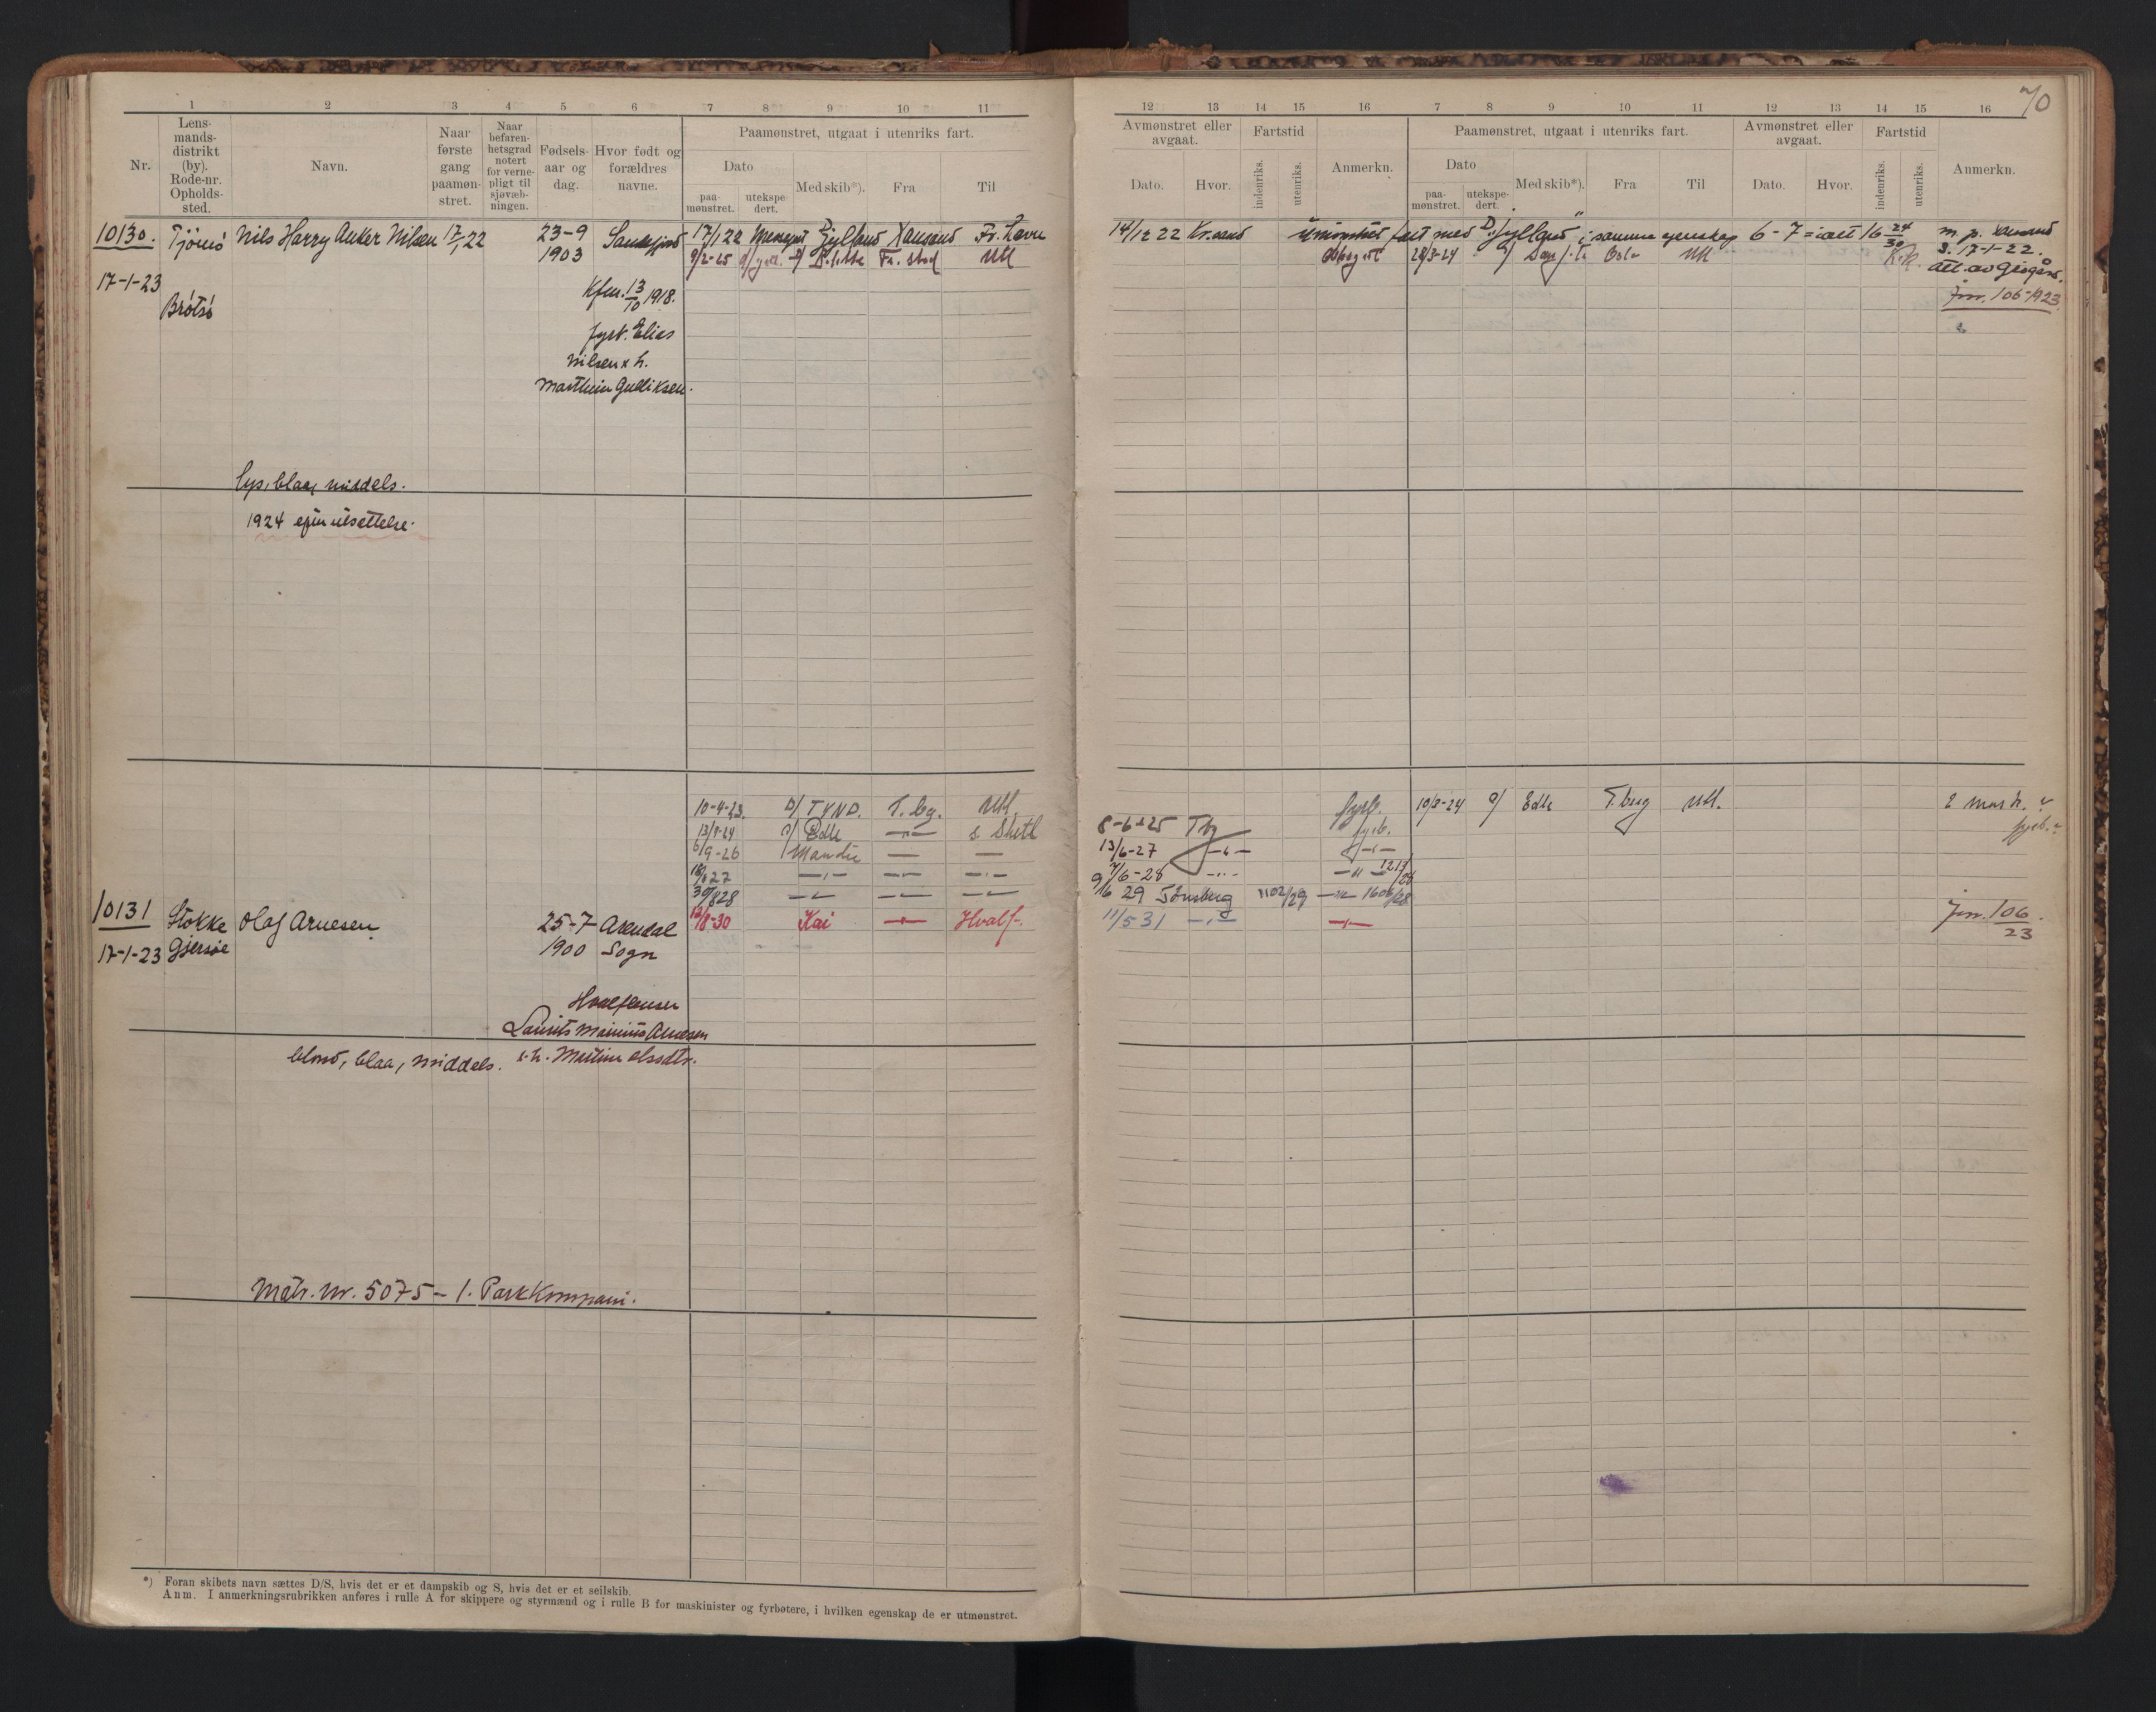 70
1 2 3 4 5 6 7 8 9 10 11
Nr.
Lens-
mands-
distrikt
(by).
Rode-nr.
Opholds-
sted.
Navn.
Naar
første
gang
paamøn-
stret.
Naar
befaren-
hetsgrad
notert
for verne-
pligt til
sjøvæb-
ningen.
Fødsels-
aar og
dag.
Hvor født og
forældres
navne.
Paamønstret, utgaat i utenriks fart.
Dato
paa-
mønstret.
utekspe-
dert.
Med skib*).
Fra
Til
10130. Tjömö Nils Harry Anker Nilsen 17/1 22 23-9 Sandefjord 17/1 22 Jylland Xansand
1903 9/2-25 Fr. stad Utl
17-1-23
Brötsö
Kfm. 13/10 1918.
fyrv. Elias
Nilsen & h.
Gulliksen.
Lys, blaa, middels.
1924 efter utsettelse.
10-4-23. D/ TYND. T.bg. Utl
13/8-24 D/ Edle —"— s. Shetl
6/9-26 — —
27 —"— —"— —"—
30/8 28 —"— —"— —"—
10131 Stokke Olaf Arnesen 25-7 Arendal 12/8-30 Kai —"— Hvalf.
17-1-23 Gjersøe 1900 Sogn
Hvalfanger
Arnesen
blond, blaa, middels. & h. Olsdtr.
Matr. Nr. 5075 - 1. Parkkompani.
*) Foran skibets navn sættes D/S, hvis det er et dampskib og S, hvis det er et seilskib.
Anm. I anmerkningsrubrikken anføres i rulle A for skippere og styrmænd og i rulle B for maskinister og fyrbøtere, i hvilken egenskap de er utmønstret.
12 13 14 15 16 7 8 9 10 11 12 13 14 15 16
Avmønstret eller
avgaat.
Dato.
Hvor.
Fartstid
indenriks.
utenriks.
Anmerkn.
Paamønstret, utgaat i utenriks fart.
Dato
paa-
mønstret.
utekspe-
dert.
Med skib*).
Fra
Til
Avmønstret eller
avgaat.
Dato.
Hvor.
Fartstid
indenriks.
utenriks.
Anmerkn.
14/12 22 Kr.sand umönstret fart med D. "Jylland" i samme egenskap 6-7 = ialt 16 24/30 m. p. Xansand
28/3-24 Oslo Utl s. 17-1-22.
att. av
Jnr. 106-1923
fyrb. 10/3-24 D/ Edle T.berg Utl. 2
8-6-25 Tbg fyrb.
13/6-27 —"— —"—
7/6-28 —"— —"—
29 Tönsberg 1102/29 —"—
11/5 31 —"— —"— Jnr. 106/23